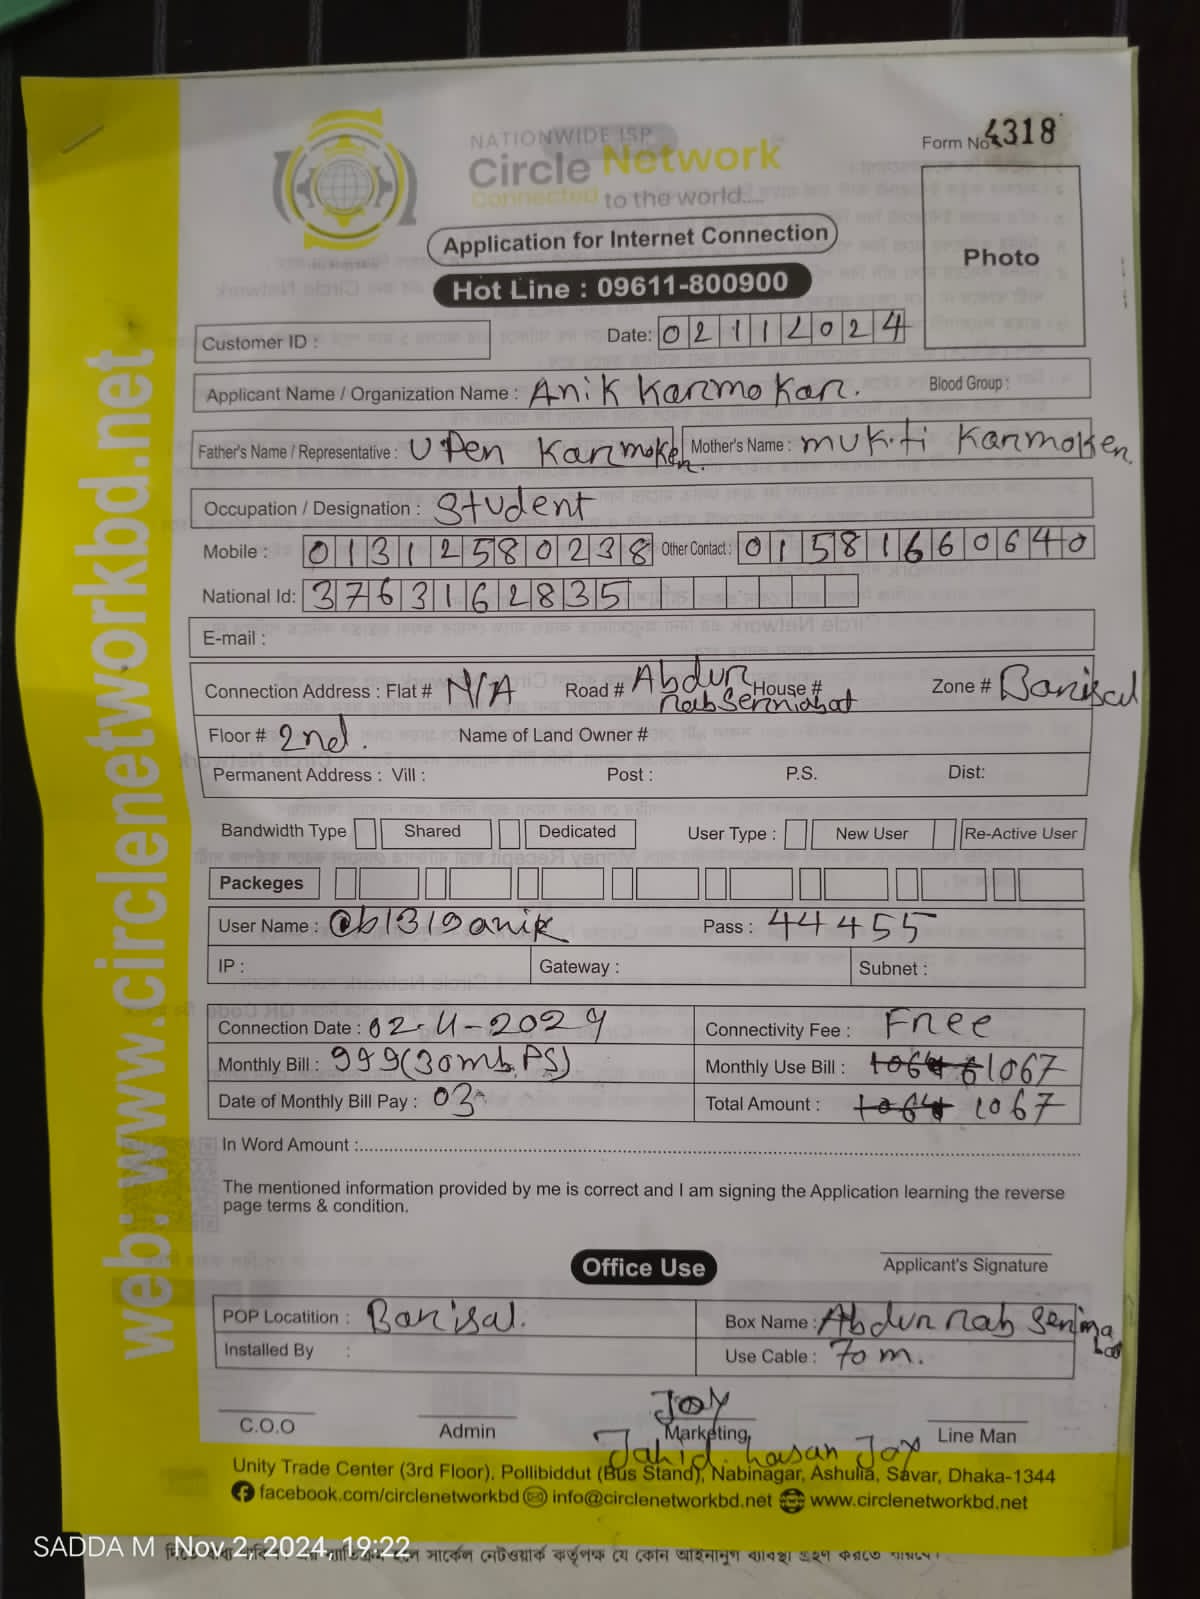 NATIONWIDE ISP
Circle Network
Connected to the world....
Form No 4318
Application for Internet Connection
Photo
Hot Line : 09611-800900
Customer ID :
Date: 02112024
Applicant Name / Organization Name : Anik Karmokar. Blood Group :
Father's Name / Representative : UPen Karmoker. Mother's Name : mukti Karmoker.
Occupation / Designation : Student
Mobile : 01312580238 Other Contact : 01581660640
National Id: 3763162835
E-mail :
Connection Address : Flat # N/A Road # Abdur rab Serniabat House # Zone # Barisal
Floor # 2nd. Name of Land Owner #
Permanent Address : Vill : Post : P.S. Dist:
Bandwidth Type Shared Dedicated User Type : New User Re-Active User
Packeges
User Name : @b1319anik Pass : 44455
IP : Gateway : Subnet :
Connection Date : 02-11-2024 Connectivity Fee : Free
Monthly Bill : 999(30mbPS) Monthly Use Bill : 1067
Date of Monthly Bill Pay : 03 Total Amount : 1067
In Word Amount :
The mentioned information provided by me is correct and I am signing the Application learning the reverse
page terms & condition.
Office Use
Applicant's Signature
POP Locatition : Barisal. Box Name : Abdur rab
Installed By : Use Cable : 70 m.
Joy
C.O.O Admin Marketing Line Man
Jahid hasan Joy
Unity Trade Center (3rd Floor), Pollibiddut (Bus Stand), Nabinagar, Ashulia, Savar, Dhaka-1344
facebook.com/circlenetworkbd info@circlenetworkbd.net www.circlenetworkbd.net
web: www.circlenetworkbd.net
SADDA M Nov 2, 2024, 19:22
সার্কেল নেটওয়ার্ক কর্তৃপক্ষ যে কোন আইনানুগ ব্যবস্থা গ্রহণ করতে পারবে।